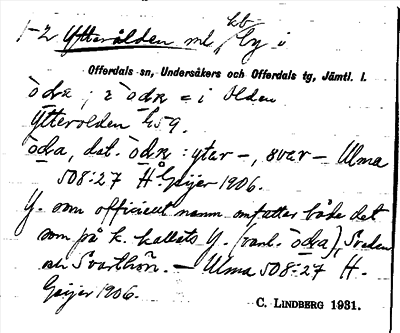 1-2 Ytterålden ml. kb by i
Offerdals sn, Undersåkers och Offerdals tg, Jämtl. l.
òdæ ; i òdæ = i Olden
Ytterolden h59.
òda, dat. òdæ : yter –, svar – Ulma
508:27 H. Geijer 1906.
Y. som officiellt namn omfattar både det
som på k. kallats Y. (vanl. òda), Sveden
och Svarthön. – Ulma 508:27 H.
Geijer 1906.
C. LINDBERG 1931.